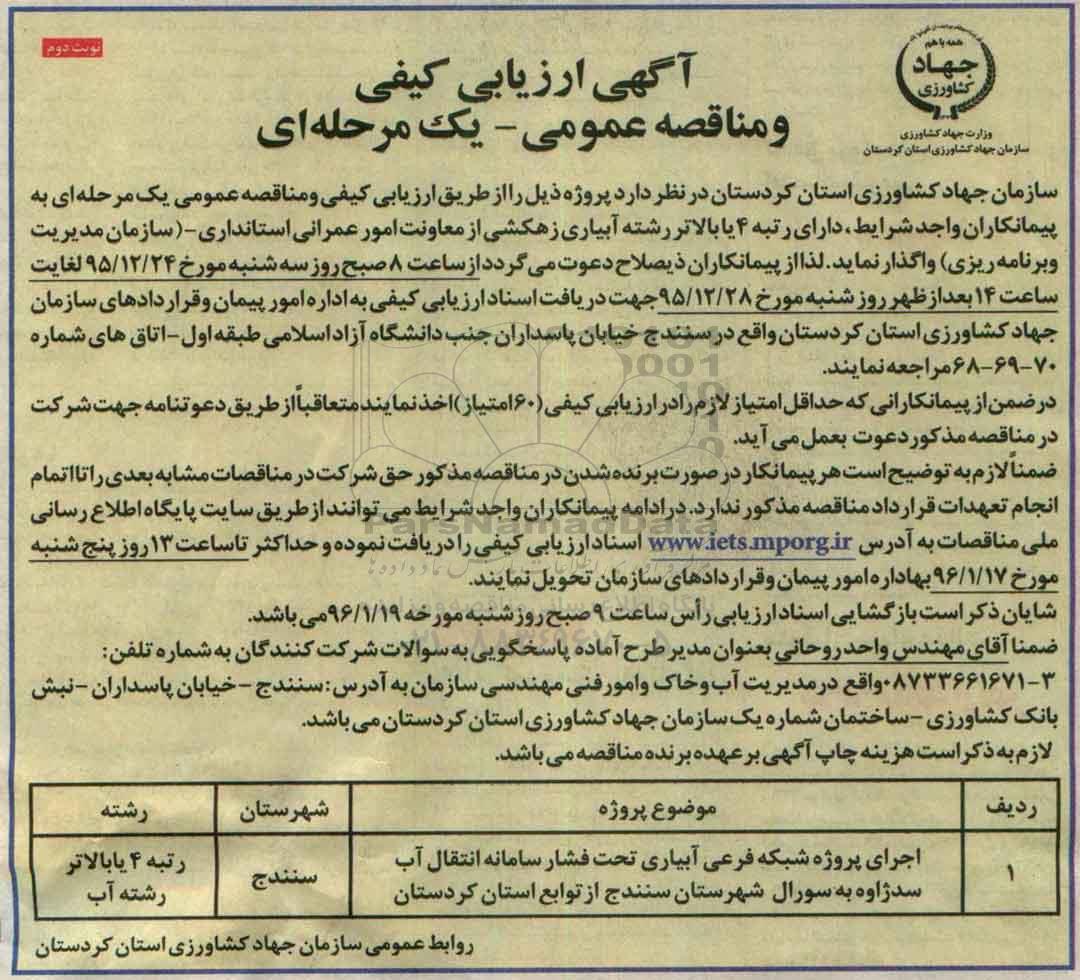 نوبت دوم
همه با هم
جهاد
کشاورزی
وزارت جهاد کشاورزی
سازمان جهاد کشاورزی استان کردستان
آگهی ارزیابی کیفی
ومناقصه عمومی - یک مرحله‌ای
سازمان جهاد کشاورزی استان کردستان در نظر دارد پروژه ذیل را از طریق ارزیابی کیفی و مناقصه عمومی یک مرحله‌ای به
پیمانکاران واجد شرایط، دارای رتبه ۴ یا بالاتر رشته آبیاری زهکشی از معاونت امور عمرانی استانداری-(سازمان مدیریت
وبرنامه ریزی) واگذار نماید. لذا از پیمانکاران ذیصلاح دعوت می گردد از ساعت ۸ صبح روز سه شنبه مورخ ۹۵/۱۲/۲۴ لغایت
ساعت ۱۴ بعداز ظهر روز شنبه مورخ ۹۵/۱۲/۲۸ جهت دریافت اسناد ارزیابی کیفی به اداره امور پیمان و قراردادهای سازمان
جهاد کشاورزی استان کردستان واقع در سنندج خیابان پاسداران جنب دانشگاه آزاد اسلامی طبقه اول-اتاق های شماره
۷۰-۶۹-۶۸ مراجعه نمایند.
در ضمن از پیمانکارانی که حداقل امتیاز لازم را در ارزیابی کیفی (۶۰ امتیاز) اخذ نمایند متعاقباً از طریق دعوتنامه جهت شرکت
در مناقصه مذکور دعوت بعمل می آید.
ضمناً لازم به توضیح است هر پیمانکار در صورت برنده شدن در مناقصه مذکور حق شرکت در مناقصات مشابه بعدی را تا اتمام
انجام تعهدات قرارداد مناقصه مذکور ندارد. در ادامه پیمانکاران واجد شرایط می توانند از طریق سایت پایگاه اطلاع رسانی
ملی مناقصات به آدرس www.iets.mporg.ir اسناد ارزیابی کیفی را دریافت نموده و حداکثر تا ساعت ۱۳ روز پنج شنبه
مورخ ۹۶/۱/۱۷ بهاداره امور پیمان و قراردادهای سازمان تحویل نمایند.
شایان ذکر است بازگشایی اسناد ارزیابی رأس ساعت ۹ صبح روز شنبه مورخه ۹۶/۱/۱۹ می باشد.
ضمنا آقای مهندس واحد روحانی بعنوان مدیر طرح آماده پاسخگویی به سوالات شرکت کنندگان به شماره تلفن:
۰۸۷۳۳۶۶۱۶۷۱-۳ واقع در مدیریت آب و خاک و امور فنی مهندسی سازمان به آدرس: سنندج - خیابان پاسداران - نبش
بانک کشاورزی - ساختمان شماره یک سازمان جهاد کشاورزی استان کردستان می باشد.
لازم به ذکر است هزینه چاپ آگهی بر عهده برنده مناقصه می باشد.
ردیف موضوع پروژه شهرستان رشته
۱ اجرای پروژه شبکه فرعی آبیاری تحت فشار سامانه انتقال آب سدژاوه به سورال شهرستان سنندج از توابع استان کردستان سنندج رتبه ۴ یا بالاتر رشته آب
روابط عمومی سازمان جهاد کشاورزی استان کردستان
ParsNamadData